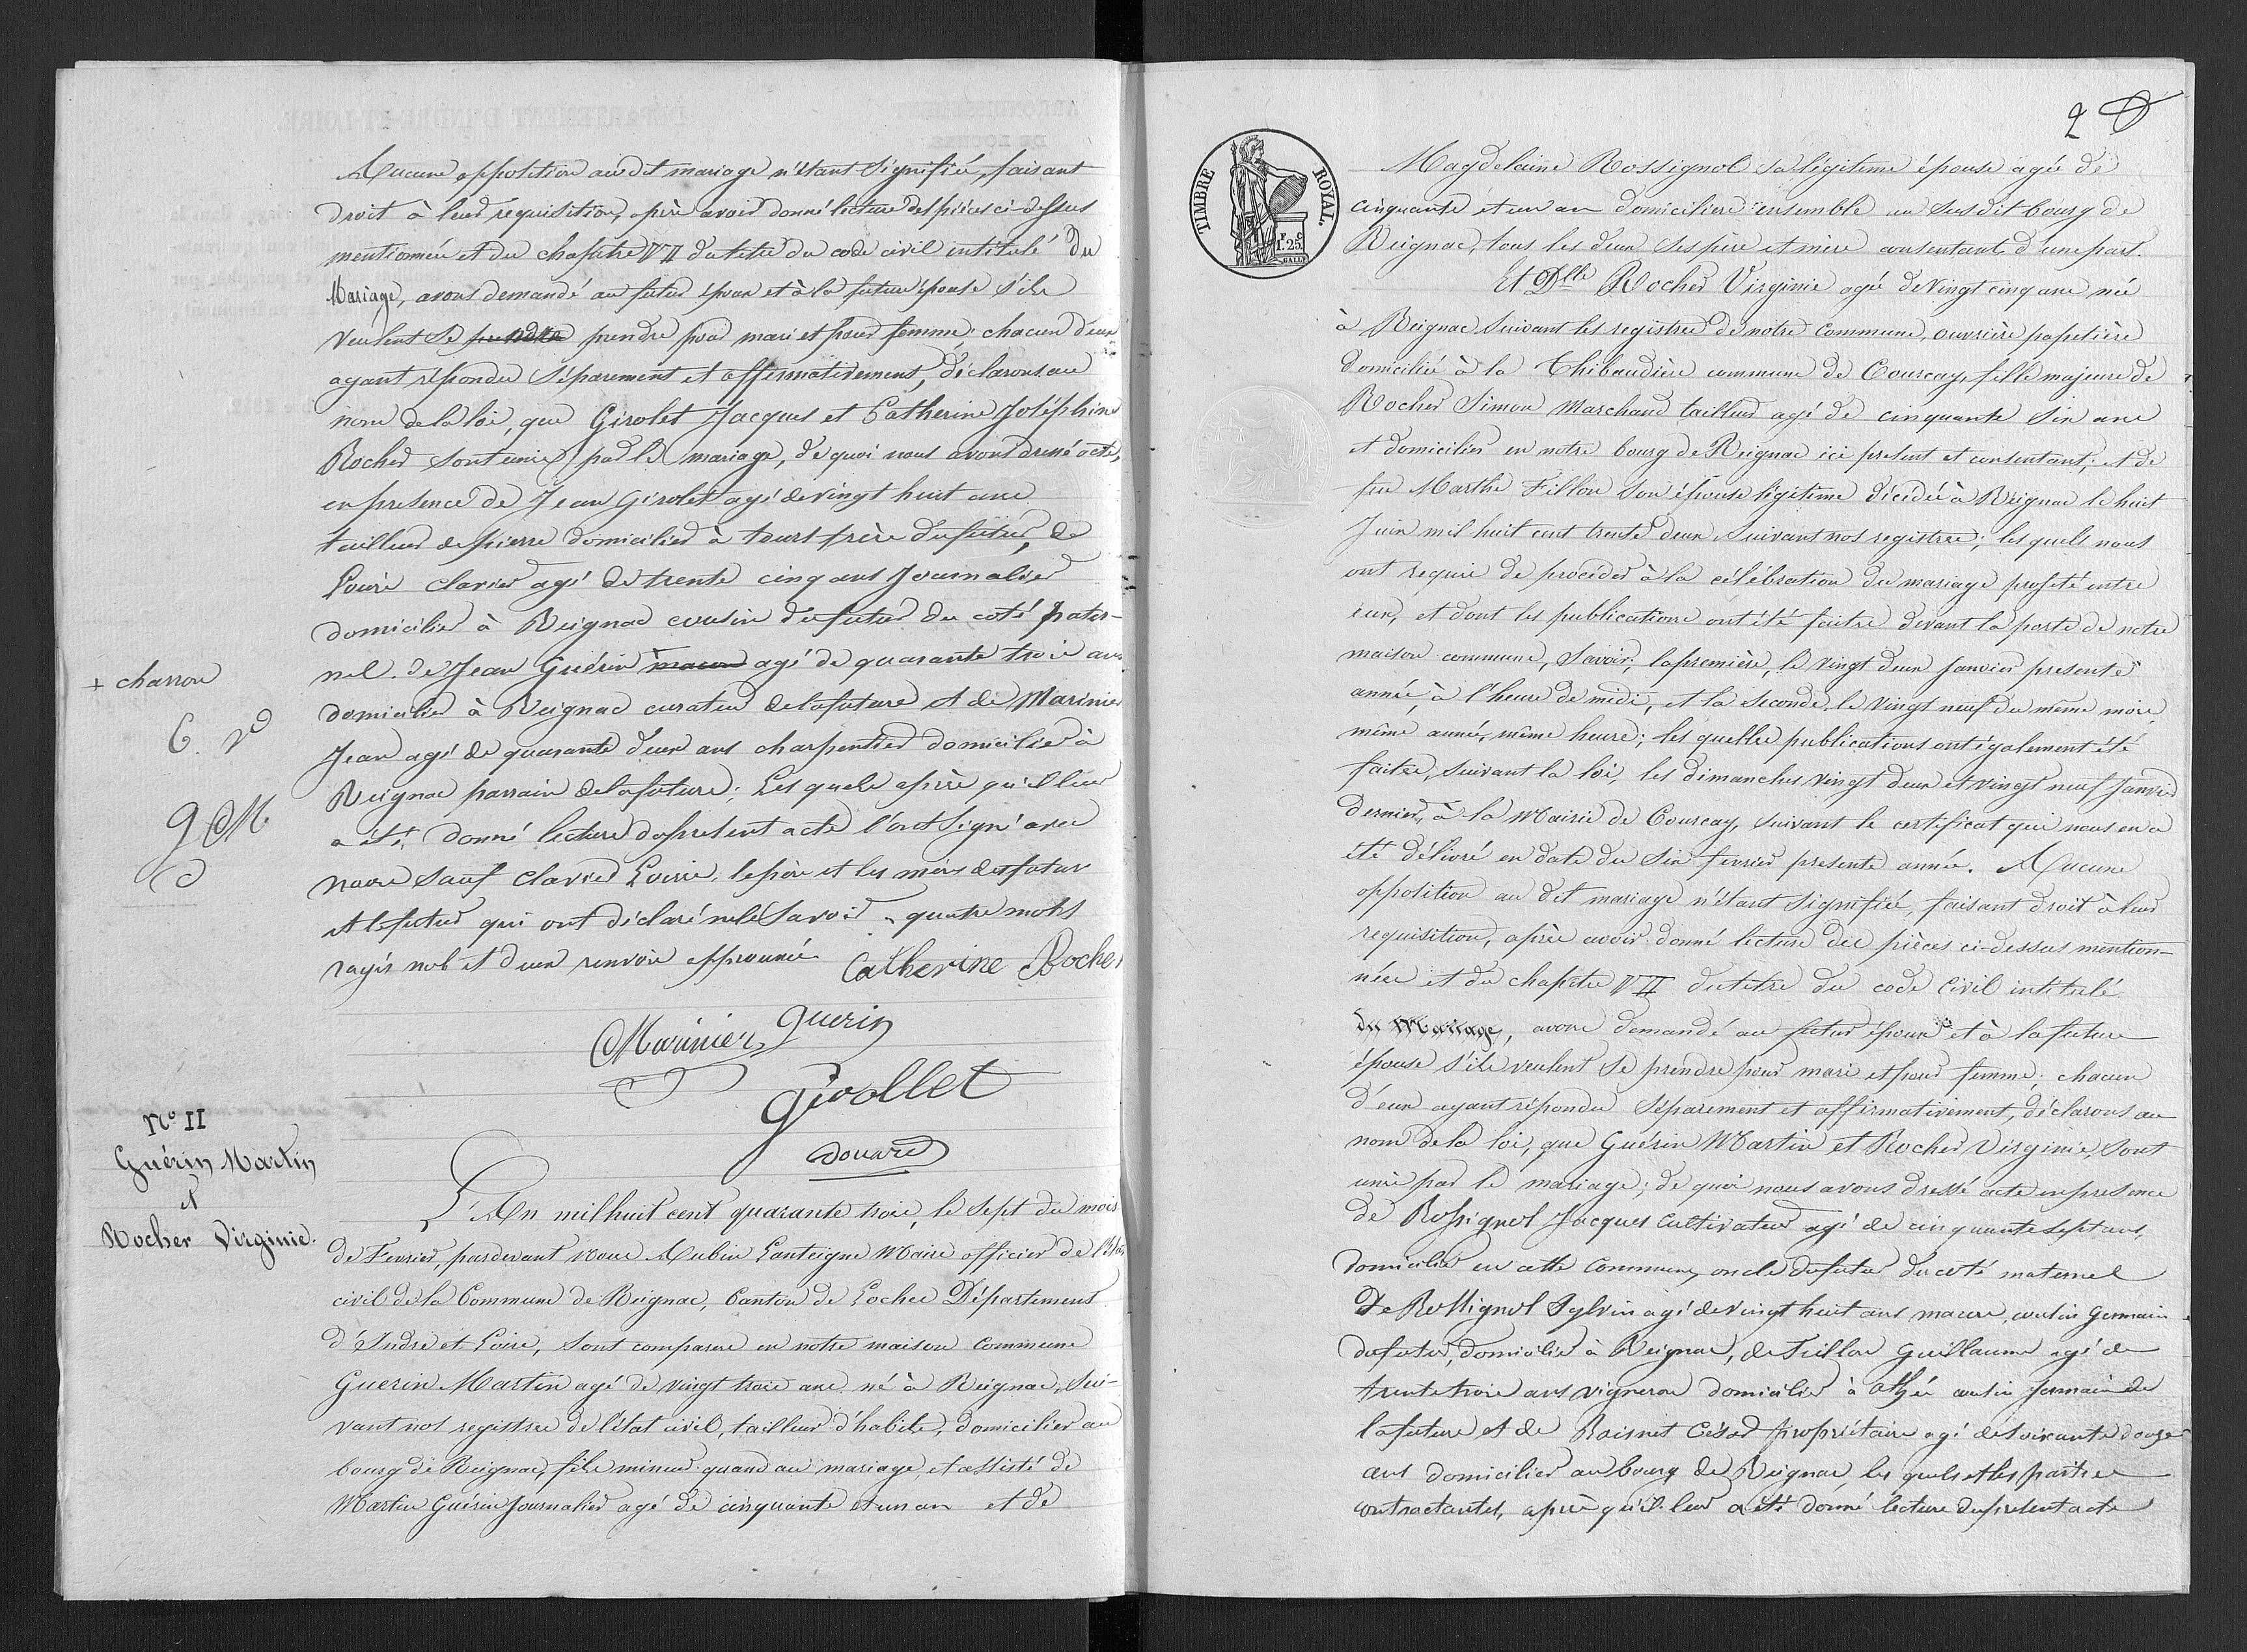 Aucune opposition audit mariage n'étant signifiée, faisant
droit à leur requisition, après avoir donné lecture des pièces ci-dessus
mentionnées et du chapitre VII du titre du code civil intitulé du
Mariage, avons demandé au futur époux et à la future épouse s'ils
veulent se prendre prendre pour mari et pour femme; chacun d'eux
ayant répondu séparement et affirmativement, déclarons au
nom de la loi, que Girolet Jacques et Catherine Joséphine
Rocher sont unis par le mariage, de quoi nous avons dressé acte,
en presence de Jean Girolet agé de vingt huit ans
tailleur de pierre domicilié à tours frère du futur, de
Louis clavier agé de trente cinq ans Journalier
domicilié à Reignac cousin du futur du coté pater-
nel. de Jean Guérin agé de quarante trois ans
+ charron
domicilié à Reignac curateur de la future et de Marinier
C. R
Jean agé de quarante deux ans charpentier domicilié à
Reignac parrain de la future; Les quels après qu'il leur
g M
a été donné lecture du présent acte l'ont signé avec
D
nous sauf clavier Louis, le père et les mères des futurs
et le futur qui ont déclaré ne le savoir. quatre mots
rayés nuls et deux renvois approuvés Catherine Rocher
Marinier guerin
girollet
Douard
N° II
Guérin Martin
et
Rocher Virginie.
L'An mil huit cent quarante trois, le sept du mois
de Fevrier, pardevant nous Aubin Lanteigne Maire officier de l'état
civil de la Commune de Reignac, Canton de Loches Département
d'Indre et Loire, sont comparus en notre maison commune
Guerin Martin agé de vingt trois ans né à Reignac, sui-
vant nos registres de l'état civil, tailleur d'habits, domicilier au
bourg de Reignac, fils mineur quand au mariage, et assisté de
Martin Guérin Journalier agé de cinquante et un an et de
2
TIMBRE ROYAL
F. C.
1. 25
Magdelaine Rossignol sa légitime épouse agée de
cinquante et un an domiciliers ensemble au susdit bourg de
Reignac, tous les deux ses père et mère consentant, d'une part.
Et Dlle Rocher Virginie agée de vingt cinq ans née
à Reignac suivant les registres de notre Commune, ouvrière papetière
domiciliée à la Thibaudière commune de Courçay, fille majeure de
Rocher Simon Marchand tailleur agé de cinquante six ans
et domicilier en notre bourg de Reignac ici présent et consentant; et de
feu Marthe Fillon son épouse légitime décédée à Reignac le huit
Juin mil huit cent trente deux suivant nos registres; lesquels nous
ont requis de procéder à la célébration du mariage projeté entre
eux, et dont les publications ont été faites devant la porte de notre
maison commune, savoir; la première, le vingt deux janvier presente
année, à l'heure de midi, et la seconde, le vingt neuf du même mois,
même année, même heure; les quelles publications ont également été
faites, suivant la loi, les dimanches vingt deux et vingt neuf Janvier
dernier, à la Mairie de Courçay, suivant le certificat qui nous en a
été délivré en date du six fevrier presente année. Aucune
opposition au dit mariage n'étant signifiée, faisant droit à leur
requisition, après avoir donné lecture des pièces ci-dessus mention-
nées et du chapitre VII du titre du code Civil intitulé
du Mariage, avons demandé au futur époux et à la future
épouse s'ils veulent se prendre pour mari et pour femme; chacun
d'eux ayant répondu séparement et affirmativement, déclarons au
nom de la loi, que Guérin Martin et Rocher Virginie, sont
unis par le mariage; de quoi nous avons dressé acte en presence
de Rossignol Jacques cultivateur agé de cinquante sept ans,
domicilié en cette Commune, oncle du futur du coté maternel
De Rossignol Sylvin agé de vingt huit ans macon, cousin germain
du futur, domicilié à Reignac, de Fillon Guillaume agé de
trente trois ans vigneron domicilié à athée cousin germain de
la future et de Boisnet César propriétaire agé de soixante douze
ans domicilier au bourg de Reignac, les quels et les parties
contractantes, après qu'il leur a été donné lecture du present acte